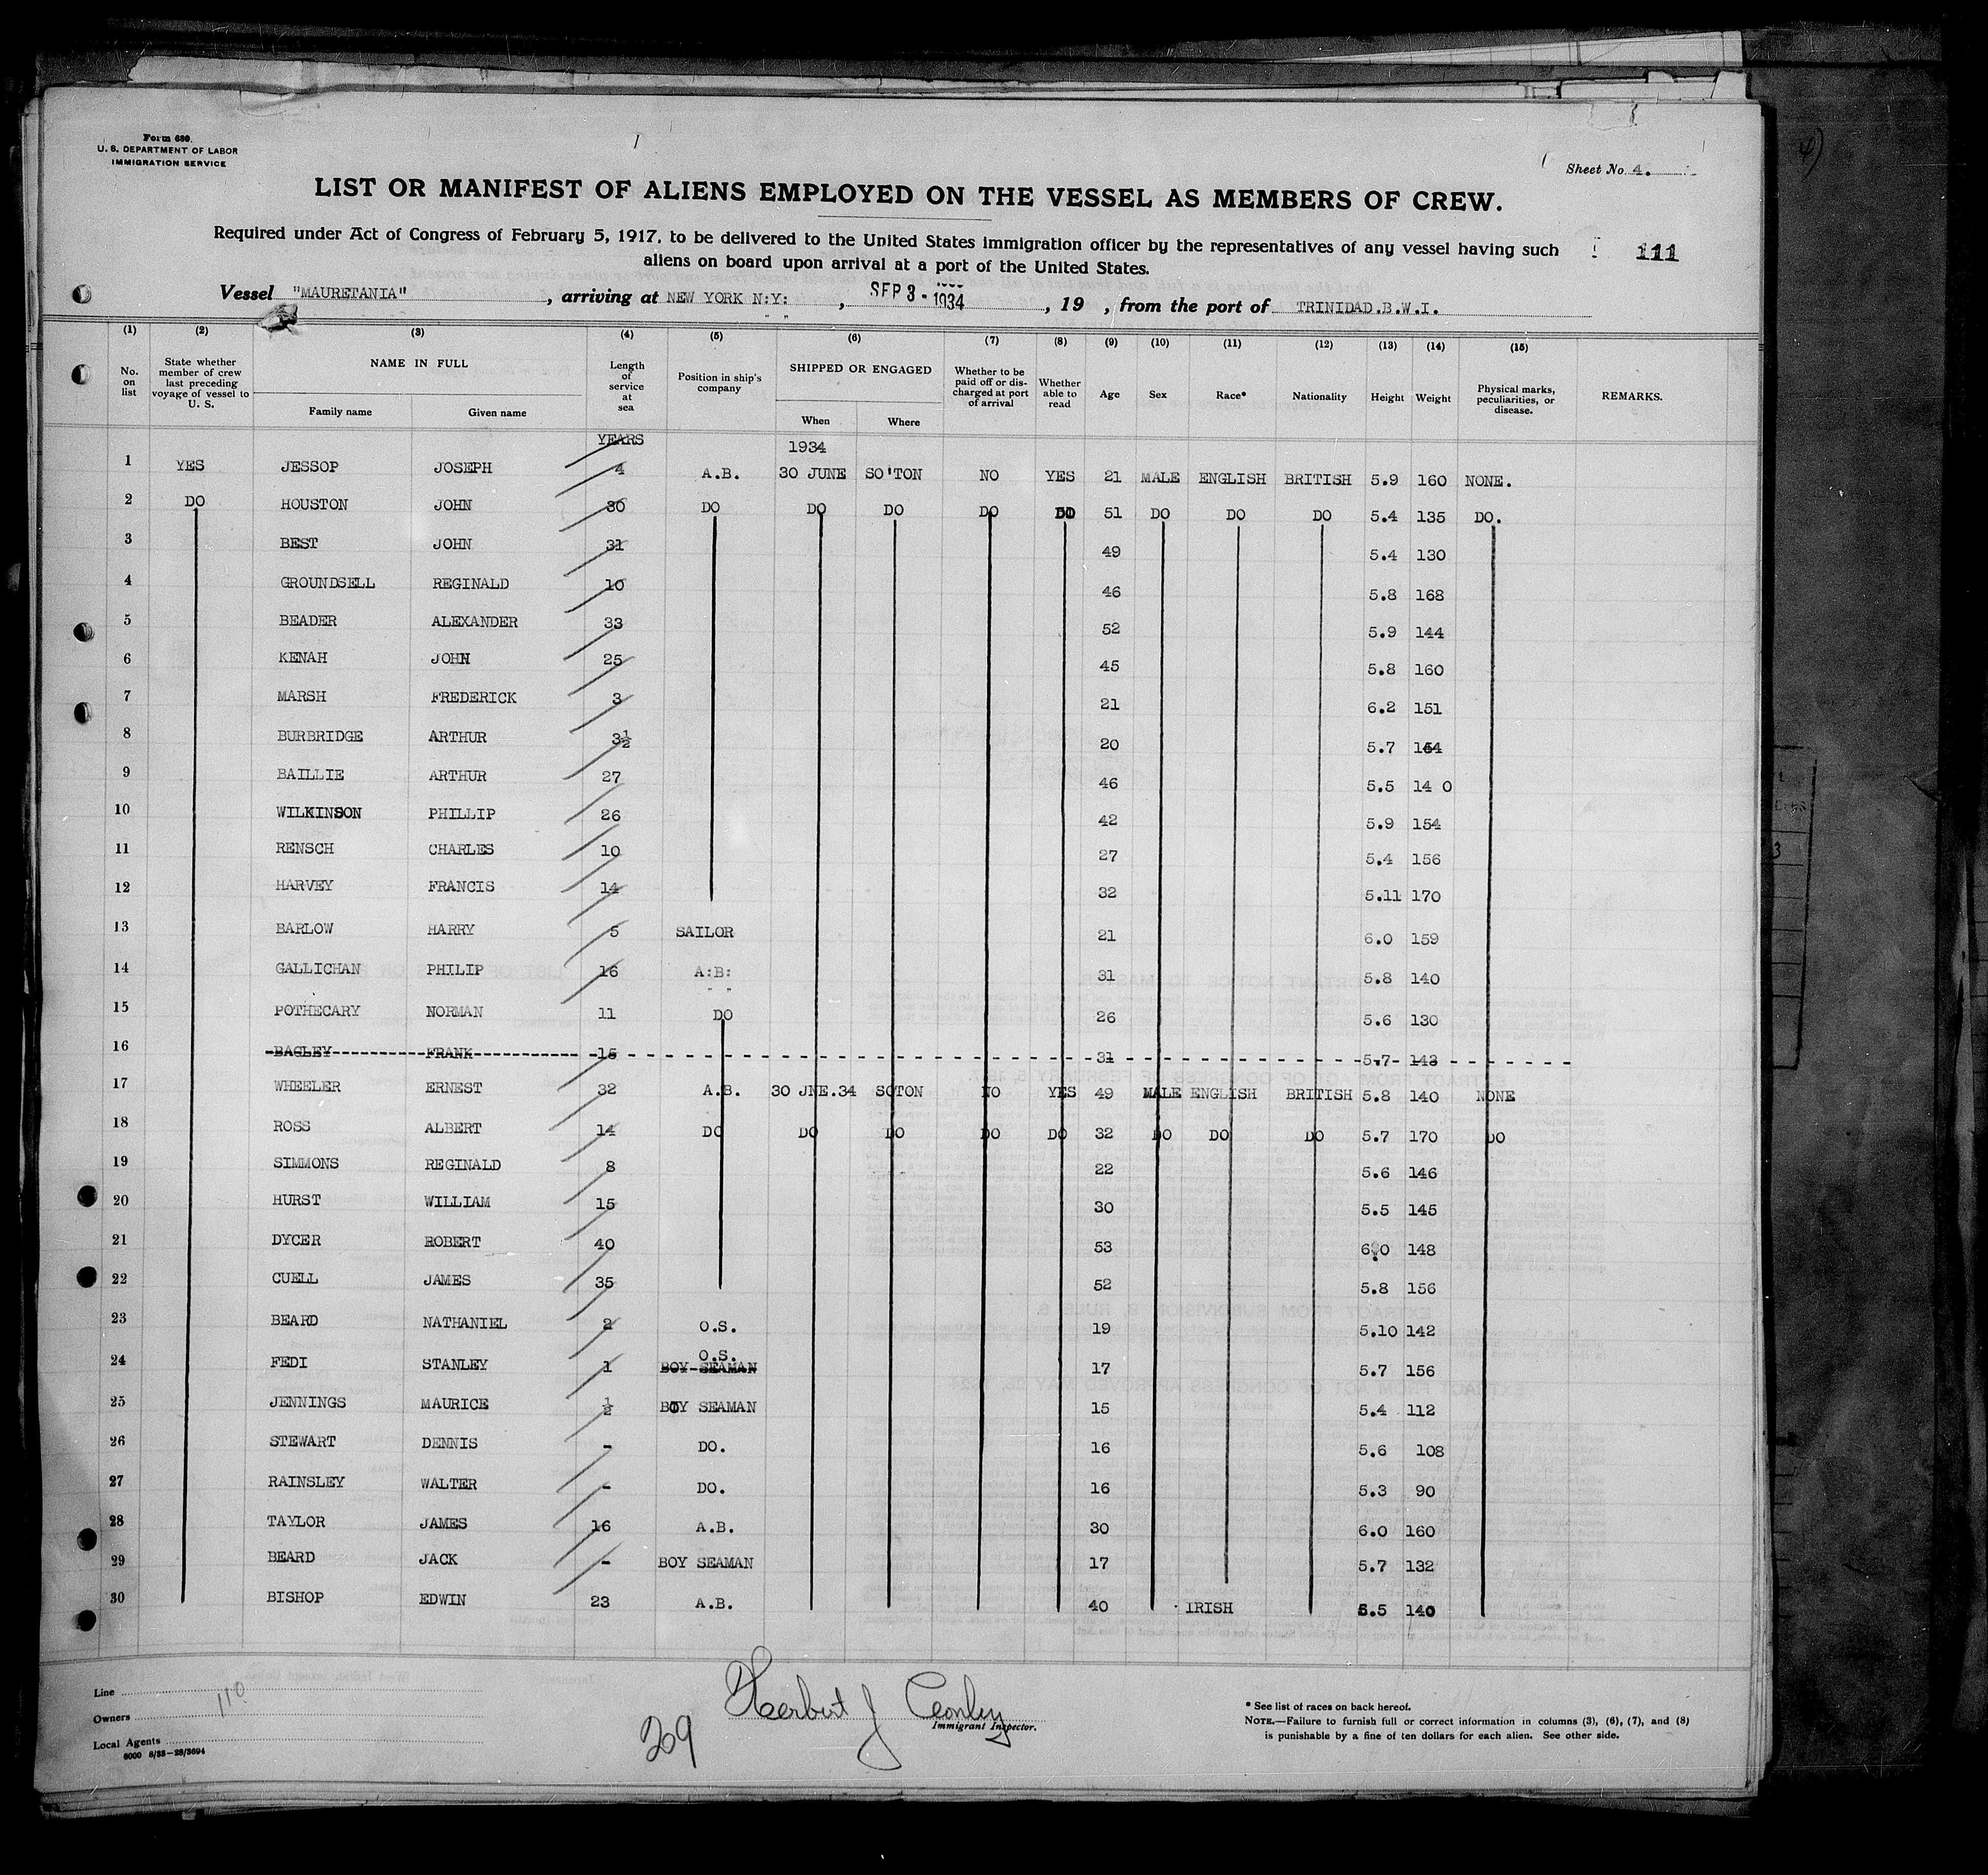 Form 680.
U. S. DEPARTMENT OF LABOR
IMMIGRATION SERVICE
Sheet No. 4.
LIST OR MANIFEST OF ALIENS EMPLOYED ON THE VESSEL AS MEMBERS OF CREW.
Required under Act of Congress of February 5, 1917, to be delivered to the United States immigration officer by the representatives of any vessel having such
aliens on board upon arrival at a port of the United States.
111
Vessel "MAURETANIA", arriving at NEW YORK N:Y:, SEP 3 - 1934, 19 , from the port of TRINIDAD.B.W.I.
(1) (2) (3) (4) (5) (6) (7) (8) (9) (10) (11) (12) (13) (14) (15)
No. on list State whether member of crew last preceding voyage of vessel to U. S. NAME IN FULL Family name Given name Length of service at sea Position in ship's company SHIPPED OR ENGAGED When Where Whether to be paid off or discharged at port of arrival Whether able to read Age Sex Race* Nationality Height Weight Physical marks, peculiarities, or disease. REMARKS.
YEARS 1934
1 YES JESSOP JOSEPH 4 A.B. 30 JUNE SO'TON NO YES 21 MALE ENGLISH BRITISH 5.9 160 NONE.
2 DO HOUSTON JOHN 30 DO DO DO DO DO 51 DO DO DO 5.4 135 DO.
3 BEST JOHN 31 49 5.4 130
4 GROUNDSELL REGINALD 10 46 5.8 168
5 BEADER ALEXANDER 33 52 5.9 144
6 KENAH JOHN 25 45 5.8 160
7 MARSH FREDERICK 3 21 6.2 151
8 BURBRIDGE ARTHUR 3½ 20 5.7 164
9 BAILLIE ARTHUR 27 46 5.5 14 0
10 WILKINSON PHILLIP 26 42 5.9 154
11 RENSCH CHARLES 10 27 5.4 156
12 HARVEY FRANCIS 14 32 5.11 170
13 BARLOW HARRY 5 SAILOR 21 6.0 159
14 GALLICHAN PHILIP 16 A:B: 31 5.8 140
15 POTHECARY NORMAN 11 DO 26 5.6 130
16 BAGLEY FRANK 15 31 5.7 143
17 WHEELER ERNEST 32 A.B. 30 JNE.34 SOTON NO YES 49 MALE ENGLISH BRITISH 5.8 140 NONE
18 ROSS ALBERT 14 DO DO DO DO DO 32 DO DO DO 5.7 170 DO
19 SIMMONS REGINALD 8 22 5.6 146
20 HURST WILLIAM 15 30 5.5 145
21 DYCER ROBERT 40 53 6.0 148
22 CUELL JAMES 35 52 5.8 156
23 BEARD NATHANIEL 2 O.S. 19 5.10 142
O.S.
24 FEDI STANLEY 1 BOY-SEAMAN 17 5.7 156
25 JENNINGS MAURICE ½ BOY SEAMAN 15 5.4 112
26 STEWART DENNIS - DO. 16 5.6 108
27 RAINSLEY WALTER - DO. 16 5.3 90
28 TAYLOR JAMES 16 A.B. 30 6.0 160
29 BEARD JACK - BOY SEAMAN 17 5.7 132
30 BISHOP EDWIN 23 A.B. 40 IRISH 5.5 140
Line
Owners 110
Local Agents
6000 8/33-28/3694
29
Herbert J Conley
Immigrant Inspector.
* See list of races on back hereof.
NOTE.—Failure to furnish full or correct information in columns (3), (6), (7), and (8)
is punishable by a fine of ten dollars for each alien. See other side.